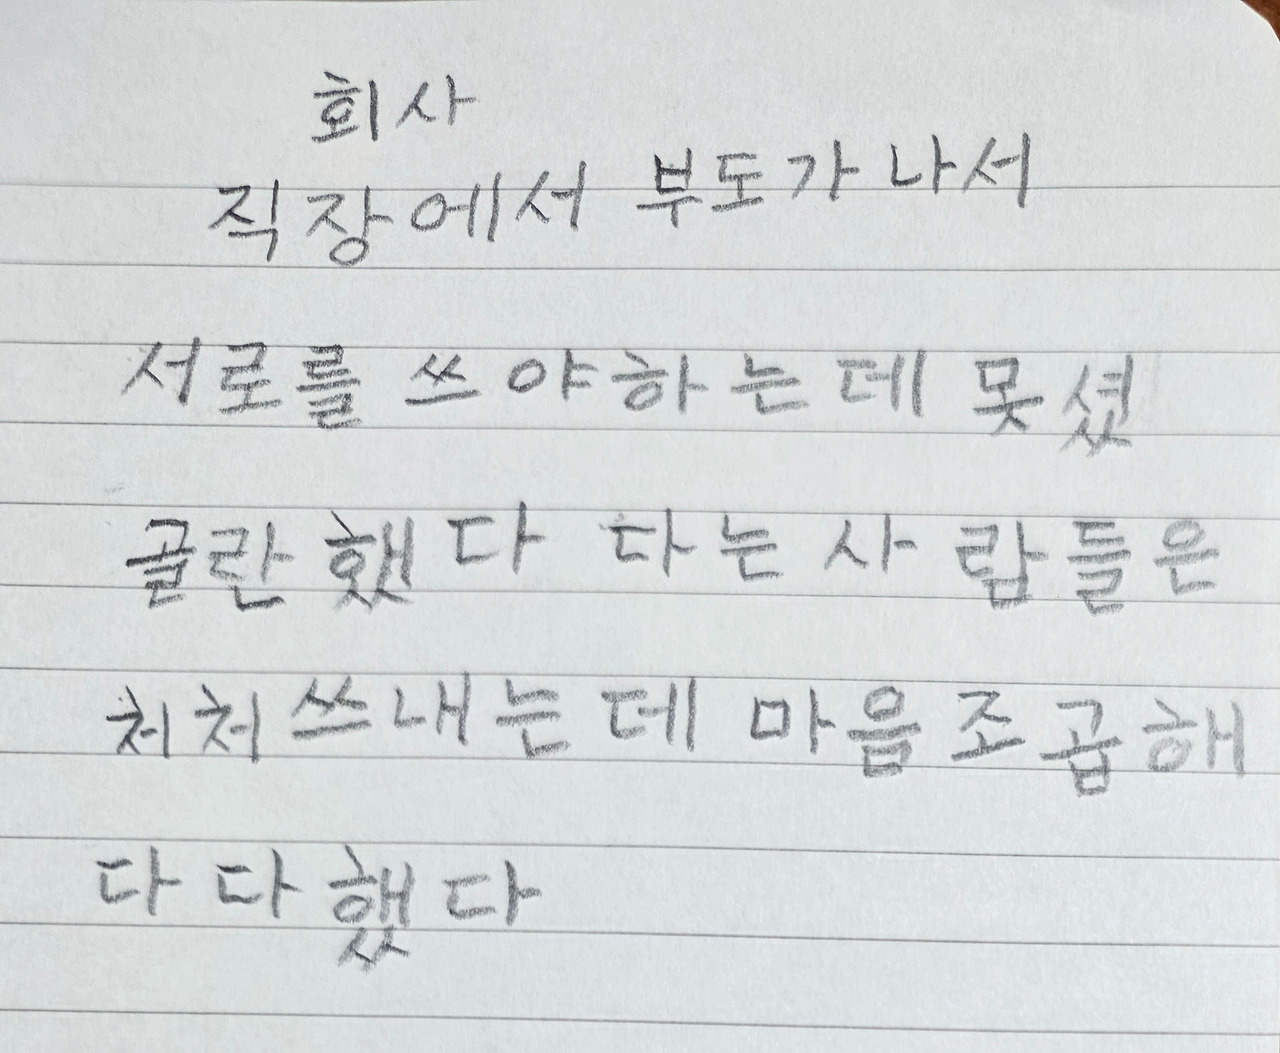 회사
직장에서 부도가 나서
서로를 쓰야하는데 못셨
골란했다 다는사람들은
처처쓰내는데 마음조곱해
다다했다